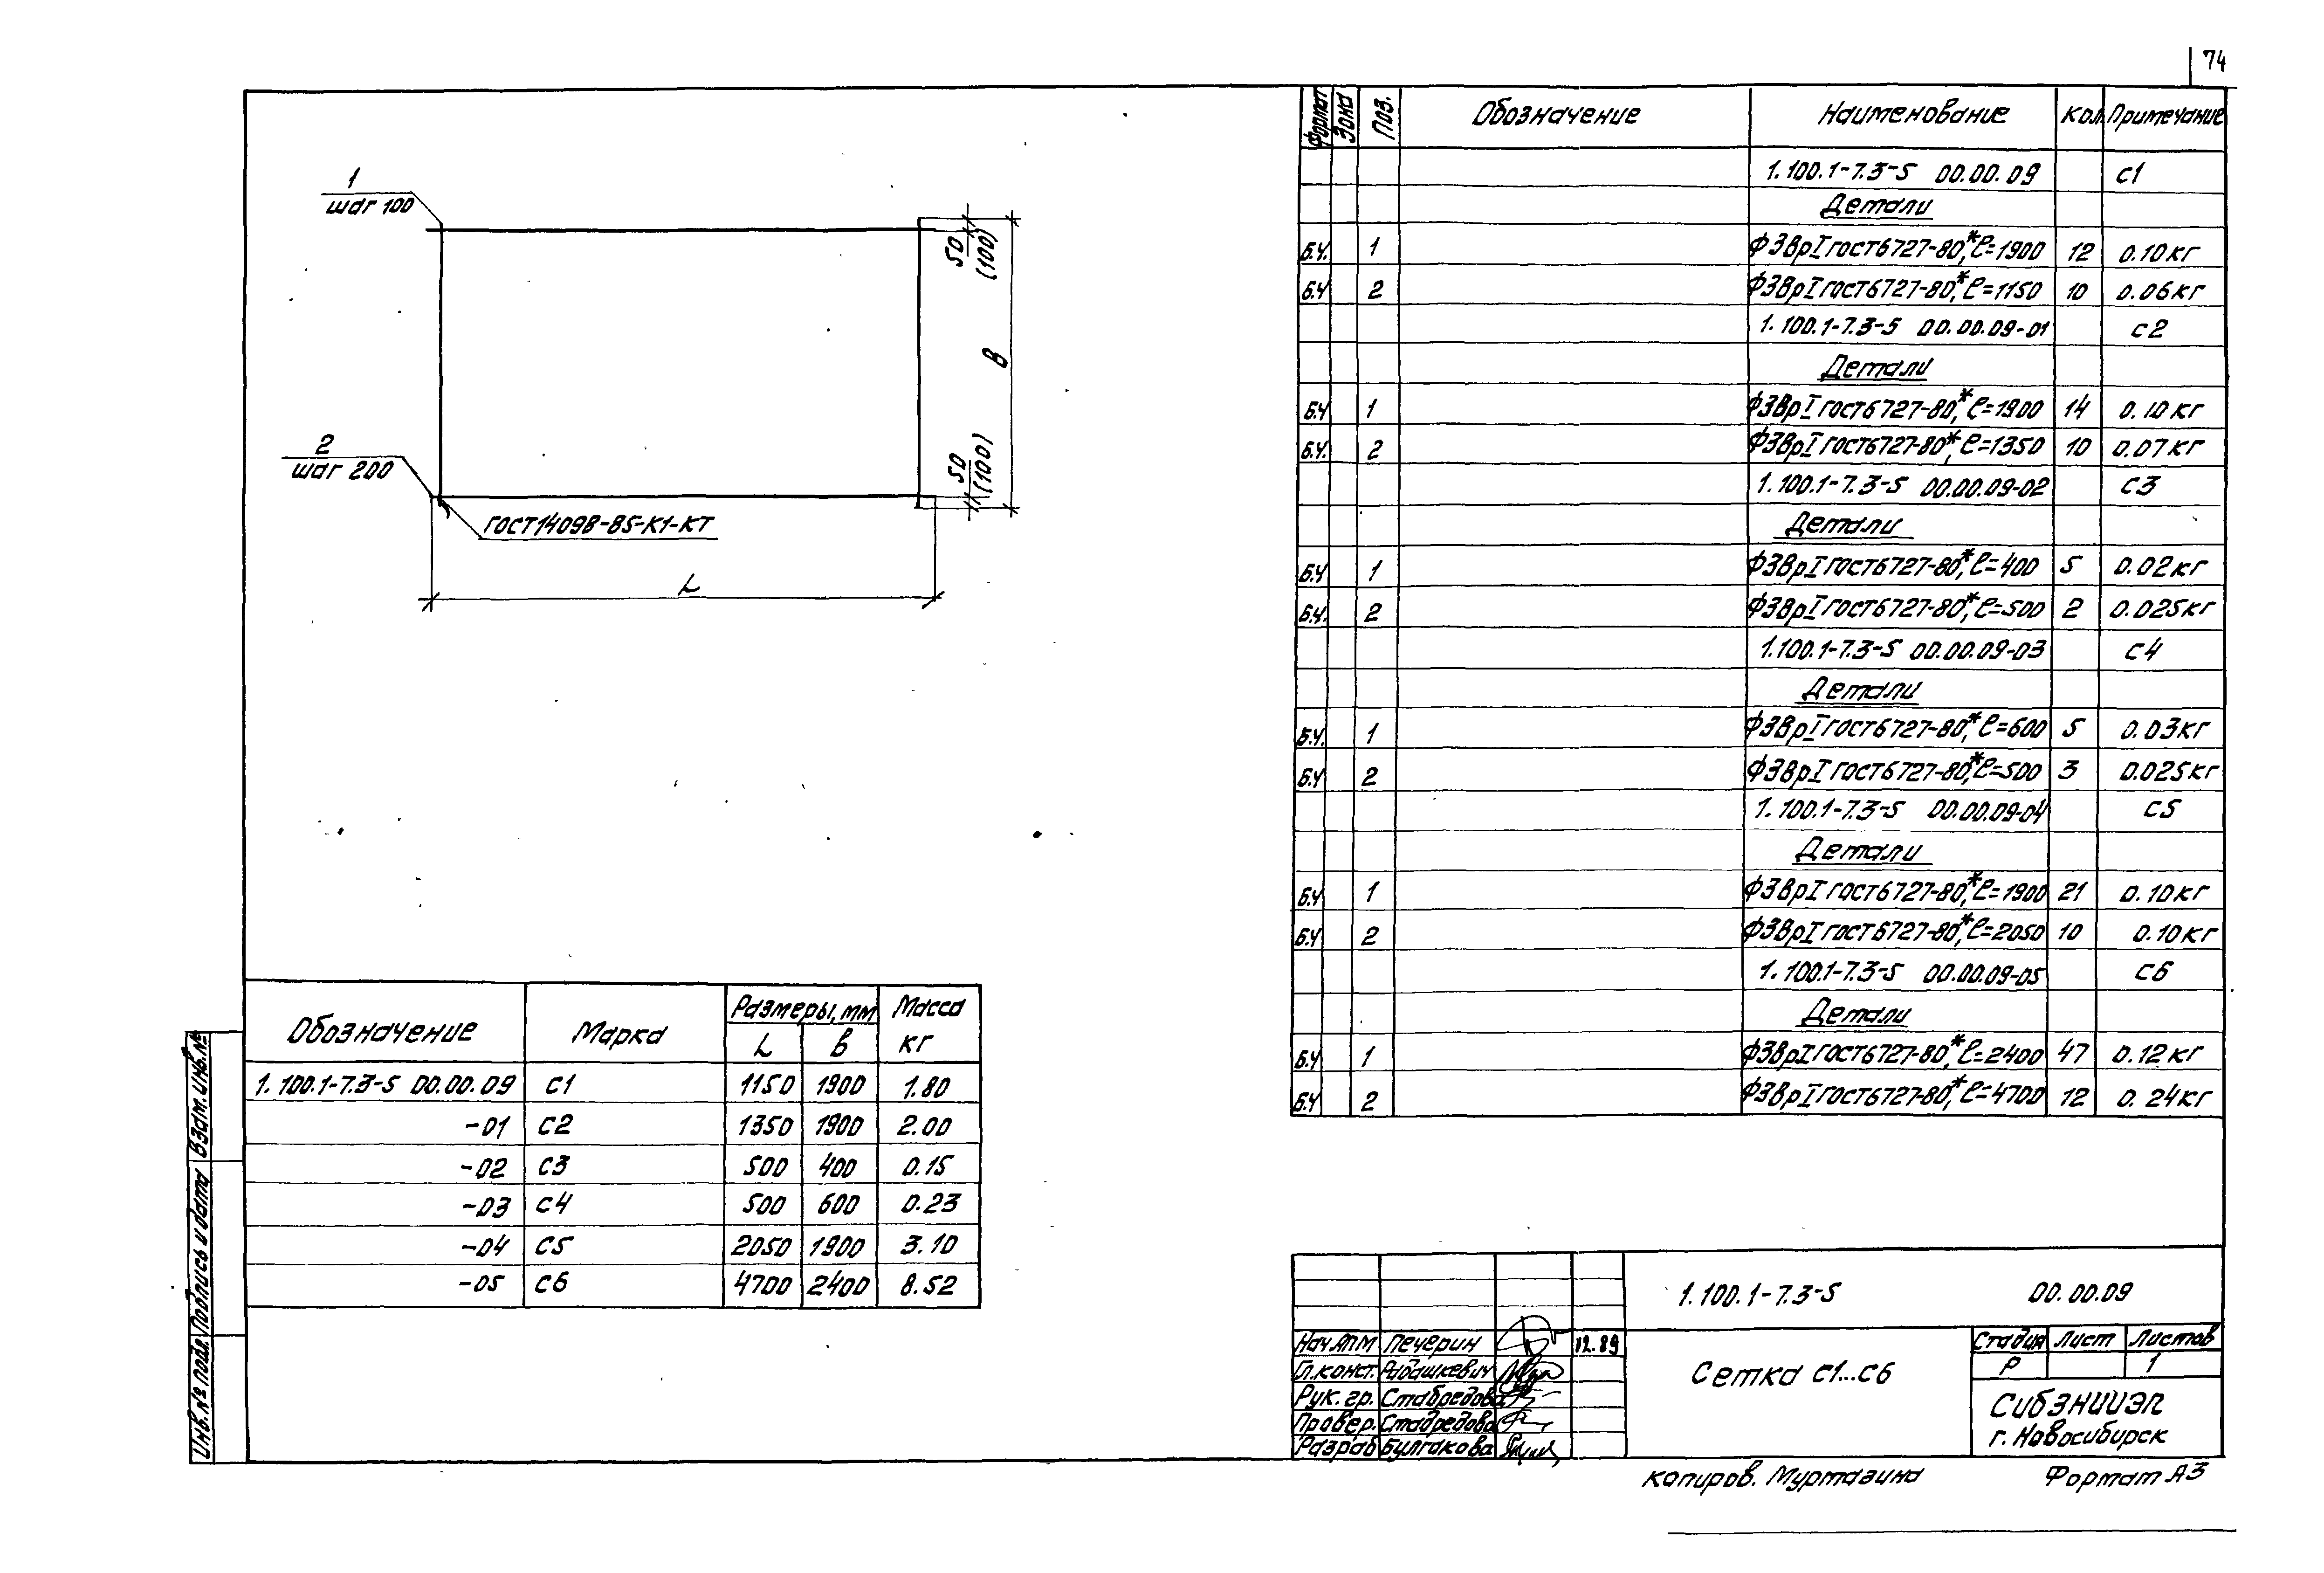 74
1
шаг 100
50
(100)
В
50
(100)
2
шаг 200
ГОСТ14098-85-К1-КТ
L
Формат Зона Поз. Обозначение Наименование Кол. Примечание
1.100.1-7.3-5 00.00.09 С1
Детали
Б.Ч. 1 Ф3ВрI ГОСТ6727-80*, ℓ=1900 12 0.10кг
Б.Ч 2 Ф3ВрI ГОСТ6727-80*, ℓ=1150 10 0.06кг
1.100.1-7.3-5 00.00.09-01 С2
Детали
Б.Ч 1 Ф3ВрI ГОСТ6727-80*, ℓ=1900 14 0.10кг
Б.Ч. 2 Ф3ВрI ГОСТ6727-80*, ℓ=1350 10 0.07кг
1.100.1-7.3-5 00.00.09-02 С3
Детали
Б.Ч 1 Ф3ВрI ГОСТ6727-80*, ℓ=400 5 0.02кг
Б.Ч. 2 Ф3ВрI ГОСТ6727-80*, ℓ=500 2 0.025кг
1.100.1-7.3-5 00.00.09-03 С4
Детали
Б.Ч. 1 Ф3ВрI ГОСТ6727-80*, ℓ=600 5 0.03кг
Б.Ч 2 Ф3ВрI ГОСТ6727-80*, ℓ=500 3 0.025кг
1.100.1-7.3-5 00.00.09-04 С5
Детали
Б.Ч 1 Ф3ВрI ГОСТ6727-80*, ℓ=1900 21 0.10кг
Б.Ч 2 Ф3ВрI ГОСТ6727-80*, ℓ=2050 10 0.10кг
1.100.1-7.3-5 00.00.09-05 С6
Детали
Б.Ч 1 Ф3ВрI ГОСТ6727-80*, ℓ=2400 47 0.12кг
Б.Ч 2 Ф3ВрI ГОСТ6727-80*, ℓ=4700 12 0.24кг
Обозначение Марка Размеры, мм Масса
L В кг
1.100.1-7.3-5 00.00.09 С1 1150 1900 1.80
-01 С2 1350 1900 2.00
-02 С3 500 400 0.15
-03 С4 500 600 0.23
-04 С5 2050 1900 3.10
-05 С6 4700 2400 8.52
Инв.№ подл. Подпись и дата Взам.инв.№
1.100.1-7.3-5 00.00.09
Нач.АПМ Печерин 12.89
Гл.конст. Рабашкевич
Рук.гр. Ставредова
Провер. Ставредова
Разраб Булгакова
Сетка С1...С6
Стадия Лист Листов
Р 1
СибЗНИИЭП
г. Новосибирск
копиров. Муртазина Формат А3